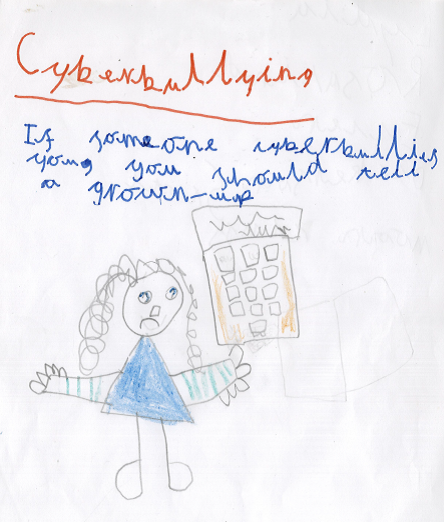 Cyberbullying
If someone cyberbullies
you, you should tell
a grown-up